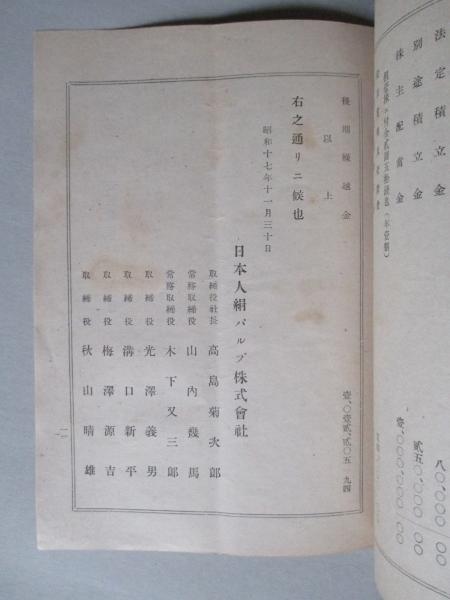 法定積立金 八〇,〇〇〇 〇〇
別途積立金 弐五〇,〇〇〇 〇〇
株主配當金 壹,〇〇〇,〇〇〇 〇〇
後期繰越金 壹,〇壹弐,弐〇五 九四
以上
右之通リニ候也
昭和十七年十一月三十日
日本人絹パルプ株式會社
取締役社長 高島菊次郎
常務取締役 山內幾馬
常務取締役 木下又三郎
取締役 光澤義男
取締役 溝口新平
取締役 梅澤源吉
取締役 秋山晴雄
一一